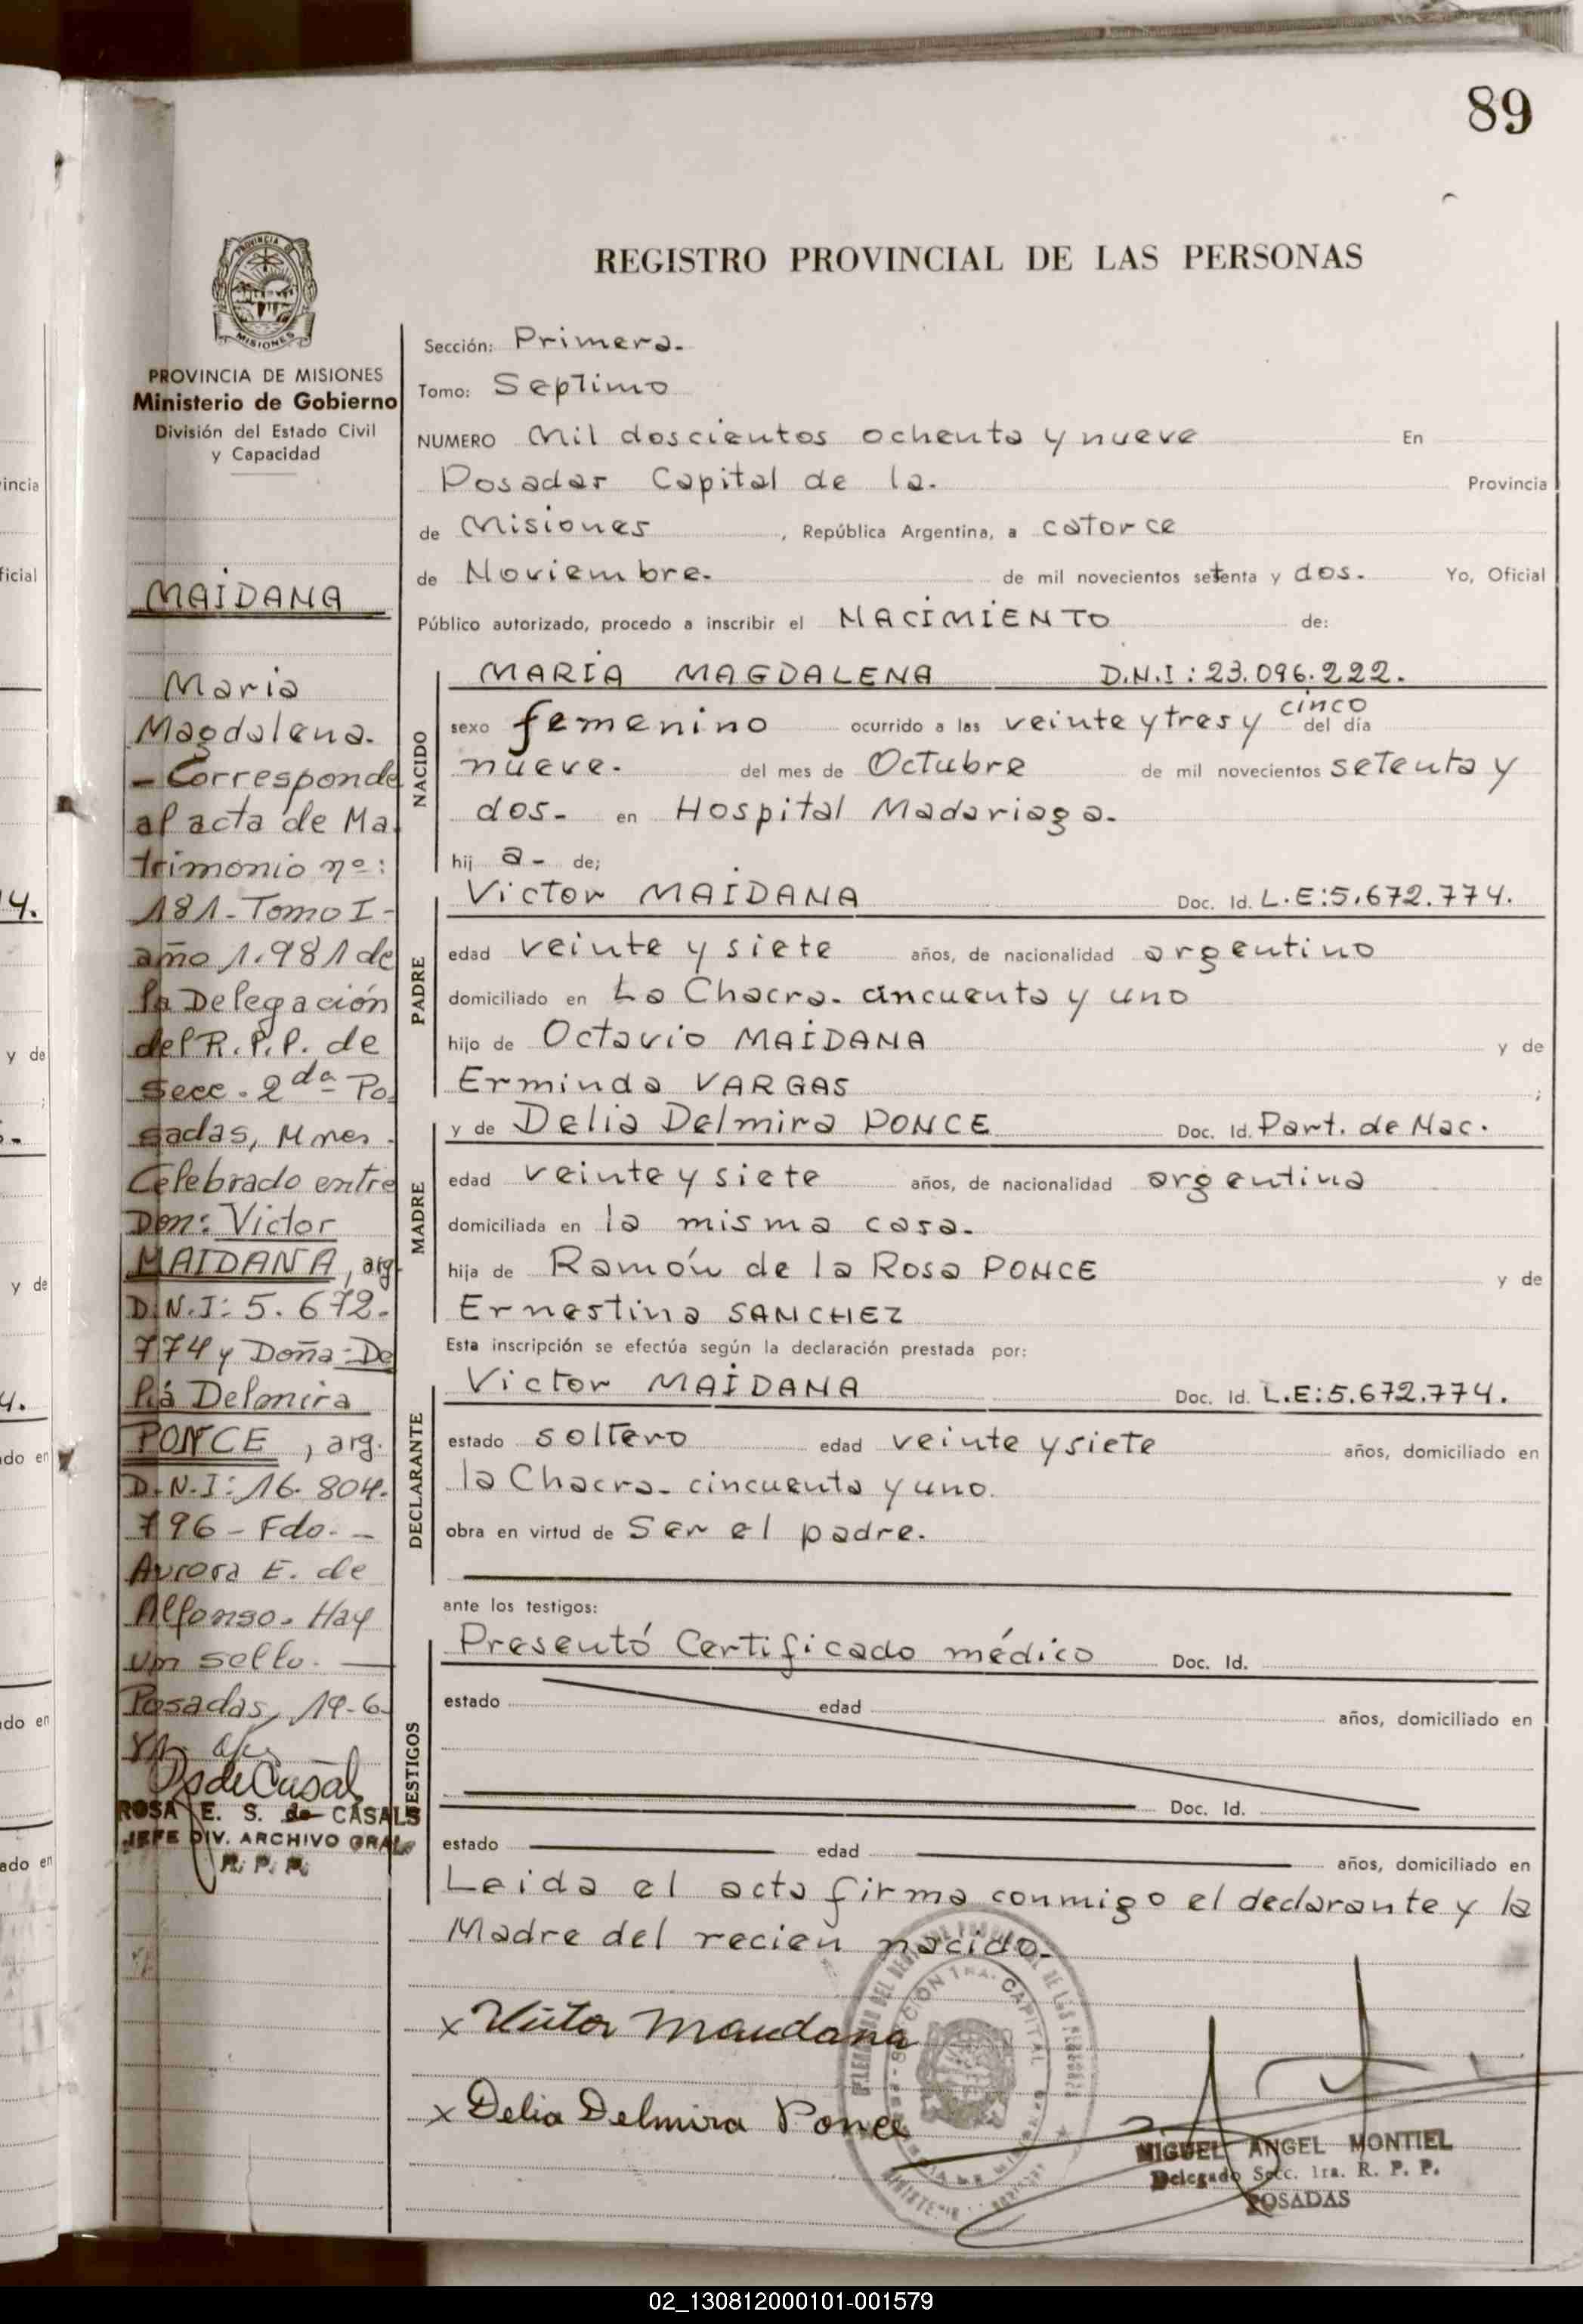 89
REGISTRO PROVINCIAL DE LAS PERSONAS
PROVINCIA DE MISIONES
Ministerio de Gobierno
División del Estado Civil
y Capacidad
MAIDANA
Maria
Magdalena.
- Corresponde
al acta de Ma
trimonio nº:
181- Tomo I-
año 1.981 de
la Delegación
del R.P.P. de
Secc. 2da Po
sadas, Mnes.
Celebrado entre
Don: Victor
MAIDANA, arg.
D.N.I: 5.672.
774 y Doña: De
lia Delmira
PONCE, arg.
D.N.I: 16.804.
796 - Fdo. -
Aurora E. de
Alfonso. Hay
un sello.
Posadas, 19-6-
ROSA E. S. de CASALS
JEFE DIV. ARCHIVO GRAL
R. P. P.
Sección: Primera.
Tomo: Septimo
NUMERO Mil doscientos ochenta y nueve En
Posadas Capital de la. Provincia
de Misiones, República Argentina, a catorce
de Noviembre. de mil novecientos setenta y dos. Yo, Oficial
Público autorizado, procedo a inscribir el NACIMIENTO de:
NACIDO
MARIA MAGDALENA D.N.I: 23.096.222.
sexo femenino ocurrido a las veinte y tres y cinco del día
nueve. del mes de Octubre de mil novecientos setenta y
dos- en Hospital Madariaga.
hij a- de;
PADRE
Victor MAIDANA Doc. Id. L.E: 5.672.774.
edad veinte y siete años, de nacionalidad argentino
domiciliado en La Chacra. cincuenta y uno
hijo de Octavio MAIDANA y de
Erminda VARGAS ;
MADRE
y de Delia Delmira PONCE Doc. Id. Part. de Nac.
edad veinte y siete años, de nacionalidad argentina
domiciliada en la misma casa.
hija de Ramón de la Rosa PONCE y de
Ernestina SANCHEZ
Esta inscripción se efectúa según la declaración prestada por:
DECLARANTE
Victor MAIDANA Doc. Id. L.E: 5.672.774.
estado soltero edad veinte y siete años, domiciliado en
la Chacra. cincuenta y uno.
obra en virtud de Ser el padre.
ante los testigos:
TESTIGOS
Presentó Certificado médico Doc. Id.
estado edad años, domiciliado en
Doc. Id.
estado edad años, domiciliado en
Leida el acta firma conmigo el declarante y la
Madre del recien nacido.
x Victor Maidana
x Delia Delmira Ponce
MIGUEL ANGEL MONTIEL
Delegado Secc. 1ra. R. P. P.
POSADAS
02_130812000101-001579